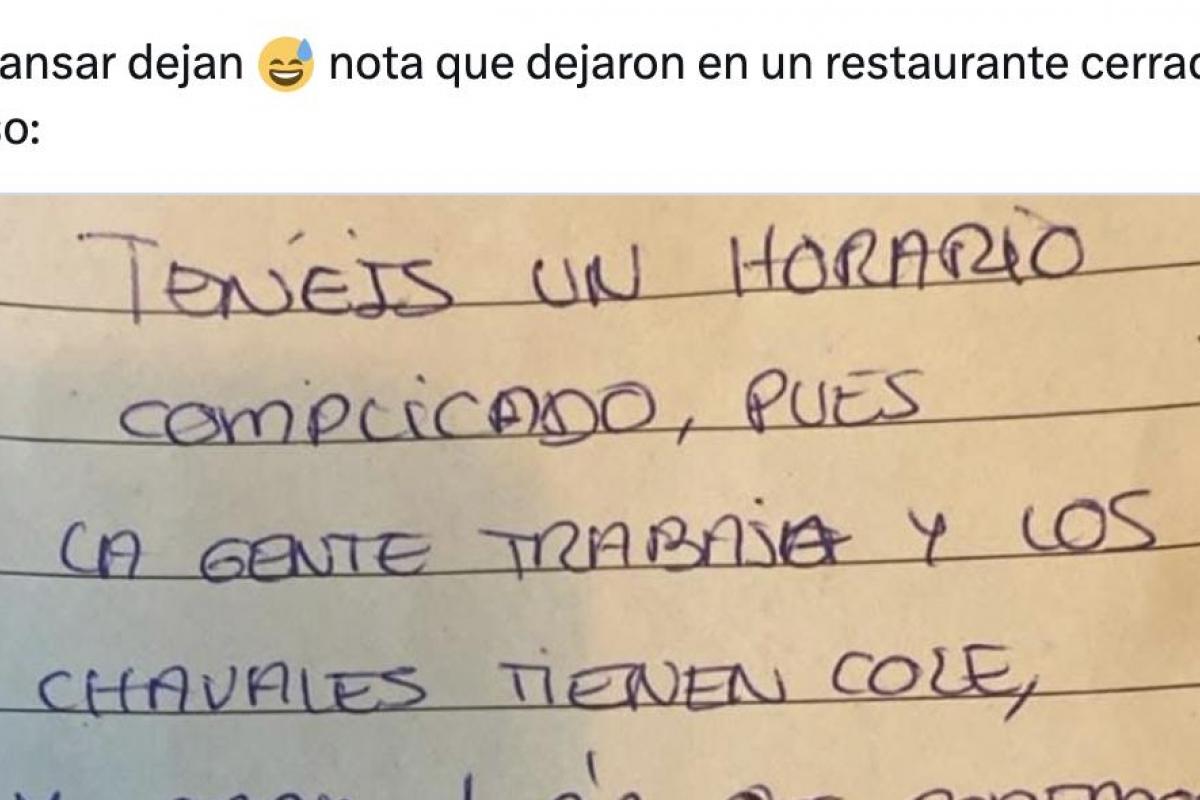 ansar dejan 😅 nota que dejaron en un restaurante cerrad
so:
TENÉIS UN HORARIO
COMPLICADO, PUES
LA GENTE TRABAJA Y LOS
CHAVALES TIENEN COLE,